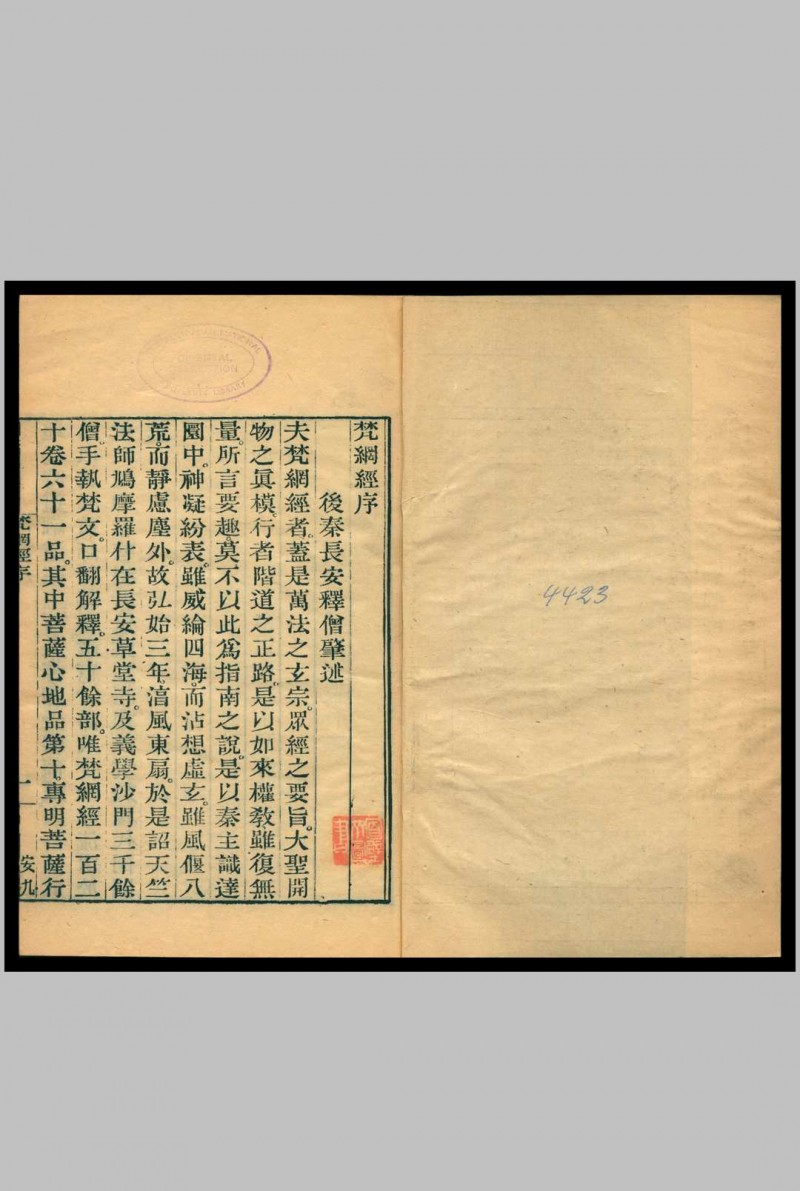 梵網經序
後秦長安釋僧肇述
夫梵網經者。蓋是萬法之玄宗。眾經之要旨。大聖開
物之眞模。行者階道之正路。是以如來權敎雖復無
量。所言要趣。莫不以此爲指南之說。是以秦主識達
圜中。神凝紛表。雖威綸四海。而沾想虛玄。雖風偃八
荒。而靜慮塵外。故弘始三年。淯風東扇。於是詔天竺
法師鳩摩羅什在長安草堂寺。及義學沙門三千餘
僧。手執梵文。口翻解釋。五十餘部。唯梵網經一百二
十卷六十一品。其中菩薩心地品第十。專明菩薩行
梵網經序
一
安九
4423